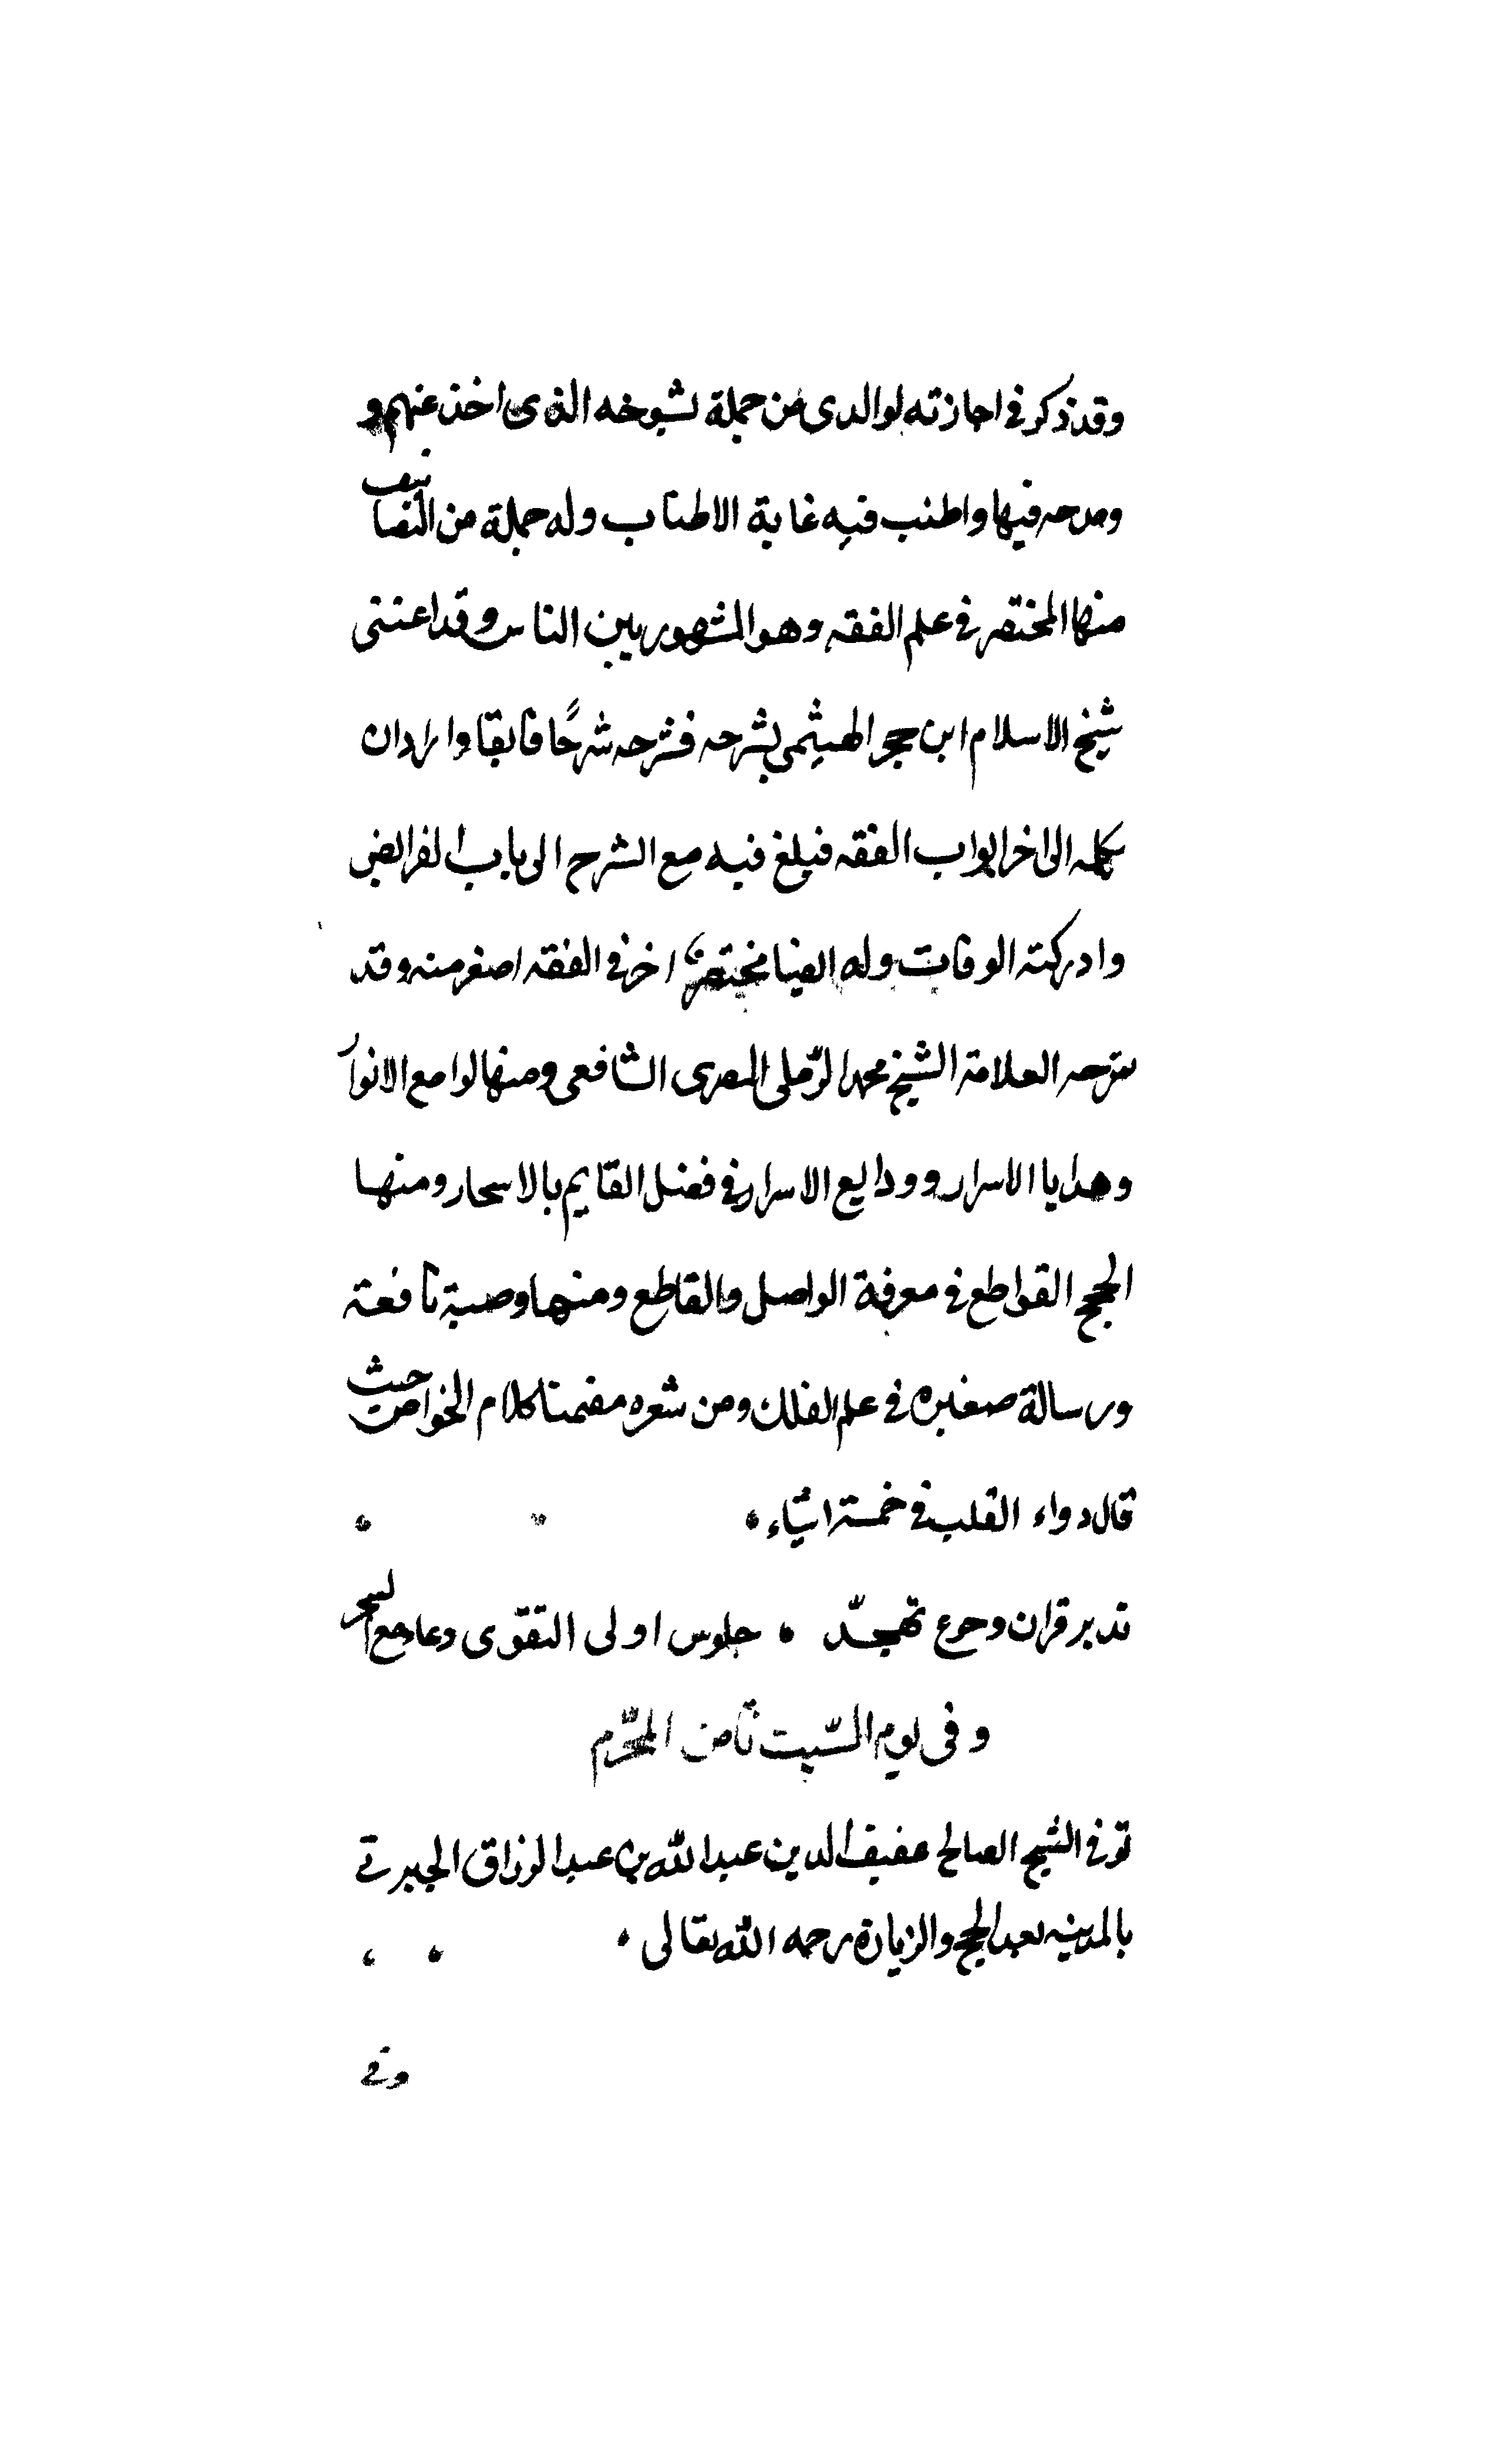 وقد ذكر في اجازته لوالدي من جملة لشيوخه الذى اخذ عنهم و
ومدحه فيها واطنب فيه غاية الاطناب وله جملة من التصانيف
منها المختصر في علم الفقه وهو المشهور بين الناس وقد اعتنى
شيخ الاسلام ابن حجر الهيثمي بشرحه فشرحه شرحًا فايقا وارادان
يكمله الى اخر ابواب الفقه فبلغ فيه مع الشرح الى باب الفرايض
وادركته الوفات وله ايضا مختصر اخر في الفقه اصغر منه وقد
شرحه العلامة الشيخ محمد الرّملى المصرى الشافعى ومنها لوامع الانوار
وهدايا الاسرار وودايع الاسرار في فضل القايم بالاسحار ومنها
الحجج القواطع في معرفة الواصل والقاطع ومنها وصية نافعة
ورسالة صغيره في علم الفلك ومن شعره مضمنا كلام الخواص حيث
قال دواء القلب في خمسة اشياء
تدبر قران وجوع تهجّد جلوس اولى التقوى دعا جمع السحر
وفى يوم السّبت ثامن المحرّم
توفي الشيخ الصالح عفيف الدين عبدالله بن عبد الرزاق الجبرتي
بالمدينه بعد الحج والزيارة رحمه الله تعالى
وفي